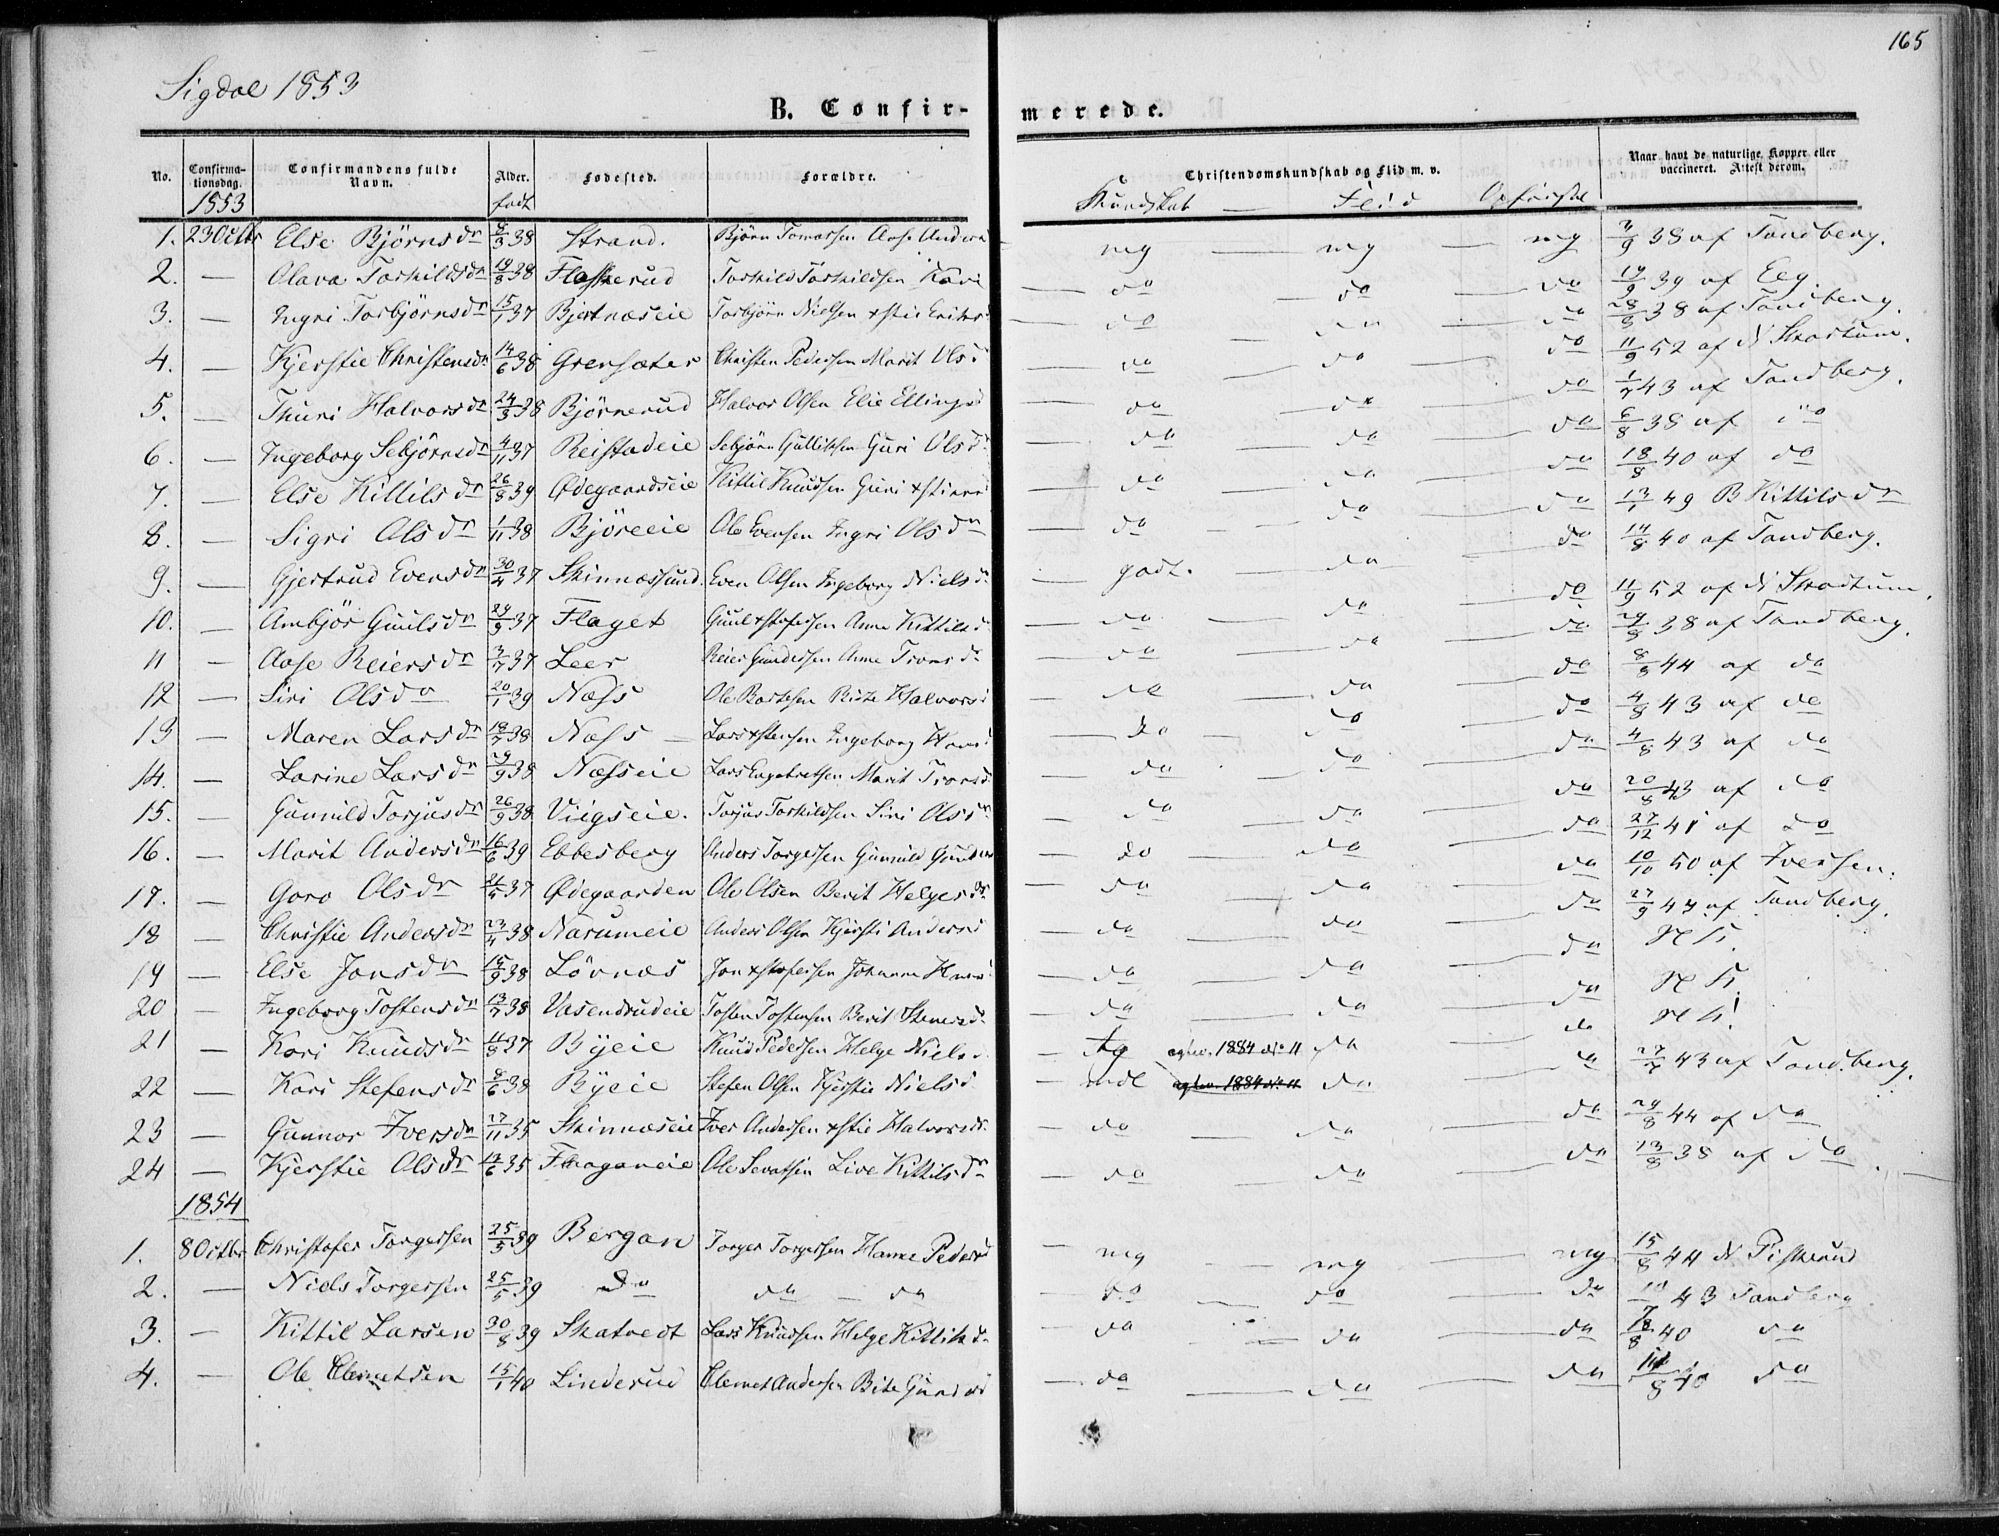 165
Sigdal 1853
B. Confir-
merede.
No.
Confirma-
tionsdag.
Confirmandens fulde
Navn.
Alder.
Fødested.
Forældre.
Christendomskundskab og Flid m. v.
Naar havt de naturlige Kopper eller
vaccineret. Attest derom.
1853
født
Kundskab — Flid Opførsel
1. 23 Octbr Else Björnsdr 8/3 38 Strand. Björn Tomassen Aase Anders — mg — mg — mg 3/9 38 af Tandberg.
2. — Olava Torkildsdr 18/8 38 Flaskerud Torkild Torkildsen Kari — do — do — do 14/9 39 af Eeg.
3. — Ingri Torbjörnsdr 15/1 37 Bjertnæseie Torbjörn Nielsen xstie Eriks — do — do — do 28/8 38 af Tandberg.
4. — Kjerstie Christensdr 14/6 38 Grensæter Christen Pedersen Marit Olsd — do — do — do 11/9 52 af N Skartum.
5. — Thuri Halvorsdr 24/3 38 Björnerud Halvor Olsen Elie Ellingsd — do — do — do 1/7 43 af Tandberg.
6. — Ingeborg Sebjörnsdr 4/11 37 Reistadeie Sebjörn Gulliksen Guri Olsd — do — do — do 6/8 38 af do
7. — Else Kittilsdr 26/8 39 Ødegaardseie Kittil Knudsen Guri — do — do — do 18/8 40 af do
8. — Sigri Olsdr 1/11 38 Björeeie Ole Evensen Ingri Olsdr — do — do — do 13/1 49 B Kittilsdr
9. — Gjertrud Evensdr 30/4 37 Skinnæssund. Even Olsen Ingeborg Nielsd — godt. — do — do 14/8 40 af Tandberg.
10. — Ambjör Guulsdr 24/9 37 Flaget Guul xstofersen Anne Kittilsd — do — do — do 11/9 52 af N Skartum.
11 — Aase Reiersdr 3/7 37 Leer Reier Gundersen Anne Tronsdr — do — do — do 24/8 38 af Tandberg.
12 — Siri Olsdr 20/1 39 Næss Ole Halvorsd — do — do — do 8/8 44 af do
13 — Maren Larsdr 18/7 38 Næss — Lars xstensen Ingeborg Hans — do — do — do 4/8 43 af do
14. — Larine Larsdr 29/9 38 Næsseie Lars Engebretsen Marit Tronsd — do — do — do 4/8 43 af do
15. — Gunnild Torjusdr 26/9 38 Viigseie. Torjus Torkildsen Siri Olsdr — do — do — do 20/8 43 af do
16. — Marit Andersdr 16/6 39 Ebbesberg Anders Torgersen Gunnild Gunders — do — do — do 27/12 41 af do
17. — Goro Olsdr 37 Ødegaarden Ole Olsen Berit Helgesdr — do — do — do 10/10 50 af Iversen.
18 — Christie Andersdr 23/4 38 Narumeie Anders Olsen Kjersti Andersd — do — do — do 27/9 43 af Tandberg.
19 — Else Jonsdr 15/9 38 Lövnæs Jon xstofersen Johanne Hans — do — do — do N K.
20 — Ingeborg Tostensdr 13/7 38 Vasendrudeie Tosten Tostensen Berit Stenersd. — do — do — do N K.
21 — Kari Knudsdr 11/8 37 Byeie Knud Pedersen Helge Niels — tg agtev. 1884 No 11 do do N K.
22 — Kari Stefensdr 8/6 38 Byeie Stefen Olsen Kjerstie Nielsd — mdl agtev. 1884 No 11 do do 27/7 43 af Tandberg.
23 — Gunnor Iversdr 27/11 35 Skinnæseie Iver Andersen xstie Halvorsdr. — do — do — do 24/8 44 af do
24 — Kjerstie Olsdr 14/6 35 Fhaganeie Ole Sevatsen Live Kittilsdr — do — do — do 13/8 38 af do.
1854
1. 8 Octbr Christofer Torgersen 25/5 39 Bergan Torger Torgersen Hanne Peders — mg — mg — mg 15/8 44 N. Piskerud
2. — Niels Torgersen 25/5 39 Do do — do — do — do — do 43 Tandberg.
3. — Kittil Larsen 30/8 39 Skatvedt Lars Knudsen Helge Kittilsd. — do — do — do 8/8 40 do
4. — Ole Clemetsen 15/1 40 Linderud Clemet Andersen Bite Gunders — do — do — do 8 40 do